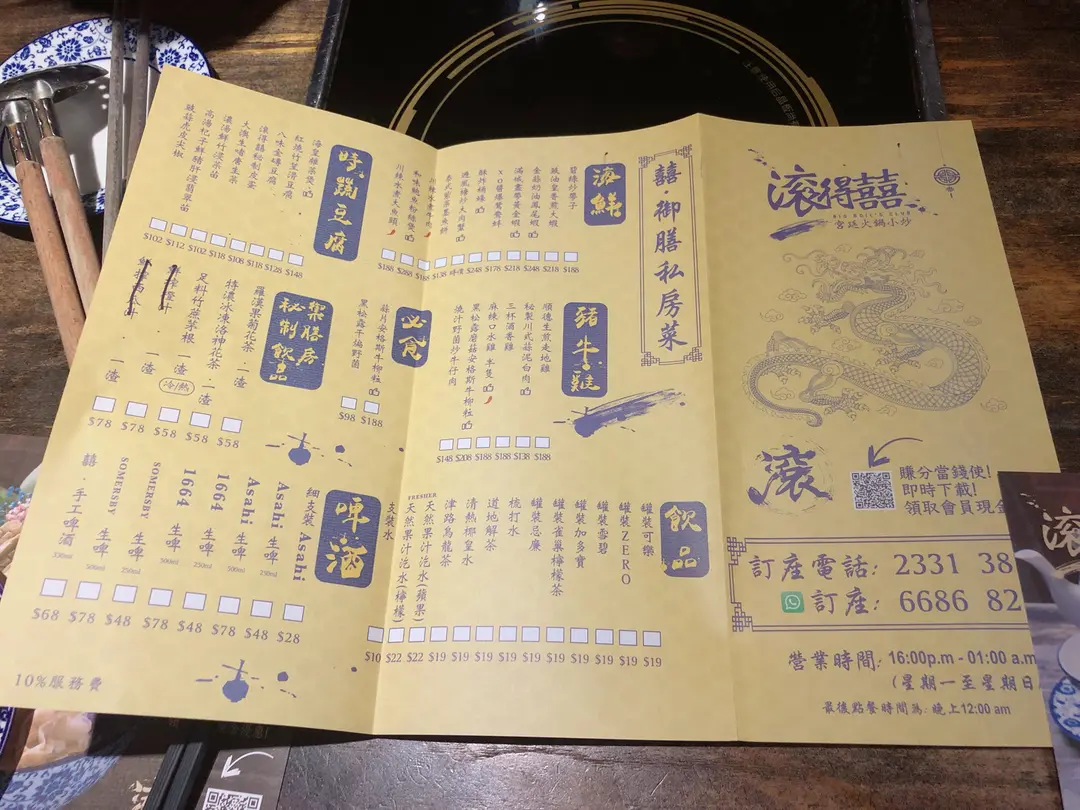 滾得囍
宮廷火鍋小炒
滾
賺分當錢使!
即時下載!
領取會員現金
訂座電話: 2331 38
訂座: 6686 82
營業時間: 16:00p.m - 01:00 a.m
(星期一至星期日
最後點餐時間為: 晚上12:00 am
囍御膳私房菜
海鮮
豉油皇香煎大蝦
金蒜奶油鳳尾蝦
滿城盡帶黃金蝦
XO醬爆鴛鴦蚌
酥炸桶蠔
避風塘炒大肉蟹
泰式紫菜墨魚餅
川辣水煮牛肉
川辣水煮大魚頭
$188 $288 $188 $138 時價 $248 $178 $218 $248 $218 $188
豬牛雞
順德生煎走地雞
秘製川式蒜泥白肉
三杯酒香雞
麻辣口水雞 半隻
黑松露蘑菇安格斯牛柳粒
燒汁野菌炒牛仔肉
$148 $208 $188 $188 $138 $188
飲品
罐裝可樂
罐裝ZERO
罐裝雪碧
罐裝加多寶
罐裝雀巢檸檬茶
罐裝忌廉
梳打水
道地解茶
清熱椰皇水
津路烏龍茶
FRESHER
天然果汁汽水(蘋果)
天然果汁汽水(檸檬)
支裝水
$10 $22 $22 $19 $19 $19 $19 $19 $19 $19 $19 $19 $19
時蔬豆腐
海皇雜菜煲
紅燒竹笙滑豆腐
八味金磚豆腐
滾得囍秘制皮蛋
大澳生啫唐生菜
濃湯鮮竹浸菜苗
高湯杞子鮮豬肝浸翡翠苗
豉蒜虎皮尖椒
$102 $112 $102 $118 $108 $118 $128 $148
必食
蒜片安格斯牛柳粒
黑松露干煸野菌
$98 $188
藥膳房秘制飲品
羅漢果菊花茶 一渣
特濃冰凍洛神花茶 一渣
足料竹蔗茅根 一渣
冷/熱
一渣
一渣
$78 $78 $58 $58 $58
啤酒
細支裝 Asahi
Asahi 生啤 250ml
Asahi 生啤 500ml
1664 生啤 250ml
1664 生啤 500ml
SOMERSBY 生啤 250ml
SOMERSBY 生啤 500ml
囍·手工啤酒 330ml
$68 $78 $48 $78 $48 $78 $48 $28
10%服務費